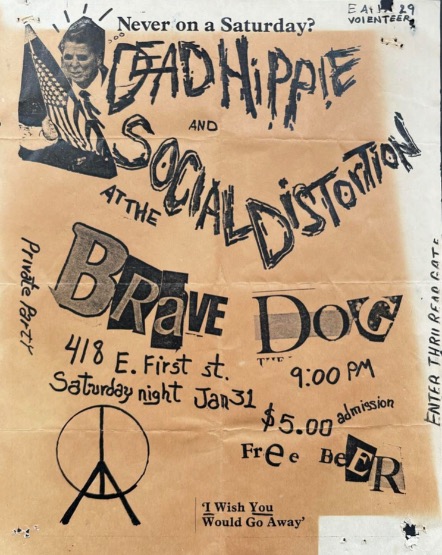 Never on a Saturday?
VOLENTEER
DEAD HiPPiE
AND
SOCIAL DISTORTION
AT THE
BRaVE DOG
Private Party
418 E. First st.
Saturday night Jan 31
9:00 PM
$5.00 admission
Free BeER
ENTER THRU REAR GATE
'I Wish You
Would Go Away'